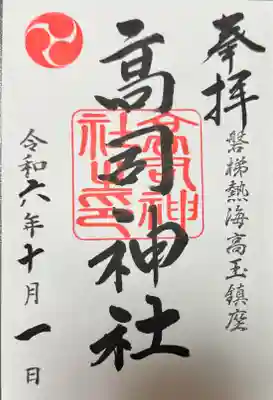 奉拝
磐梯熱海高玉鎮座
高司神社
令和六年十月一日